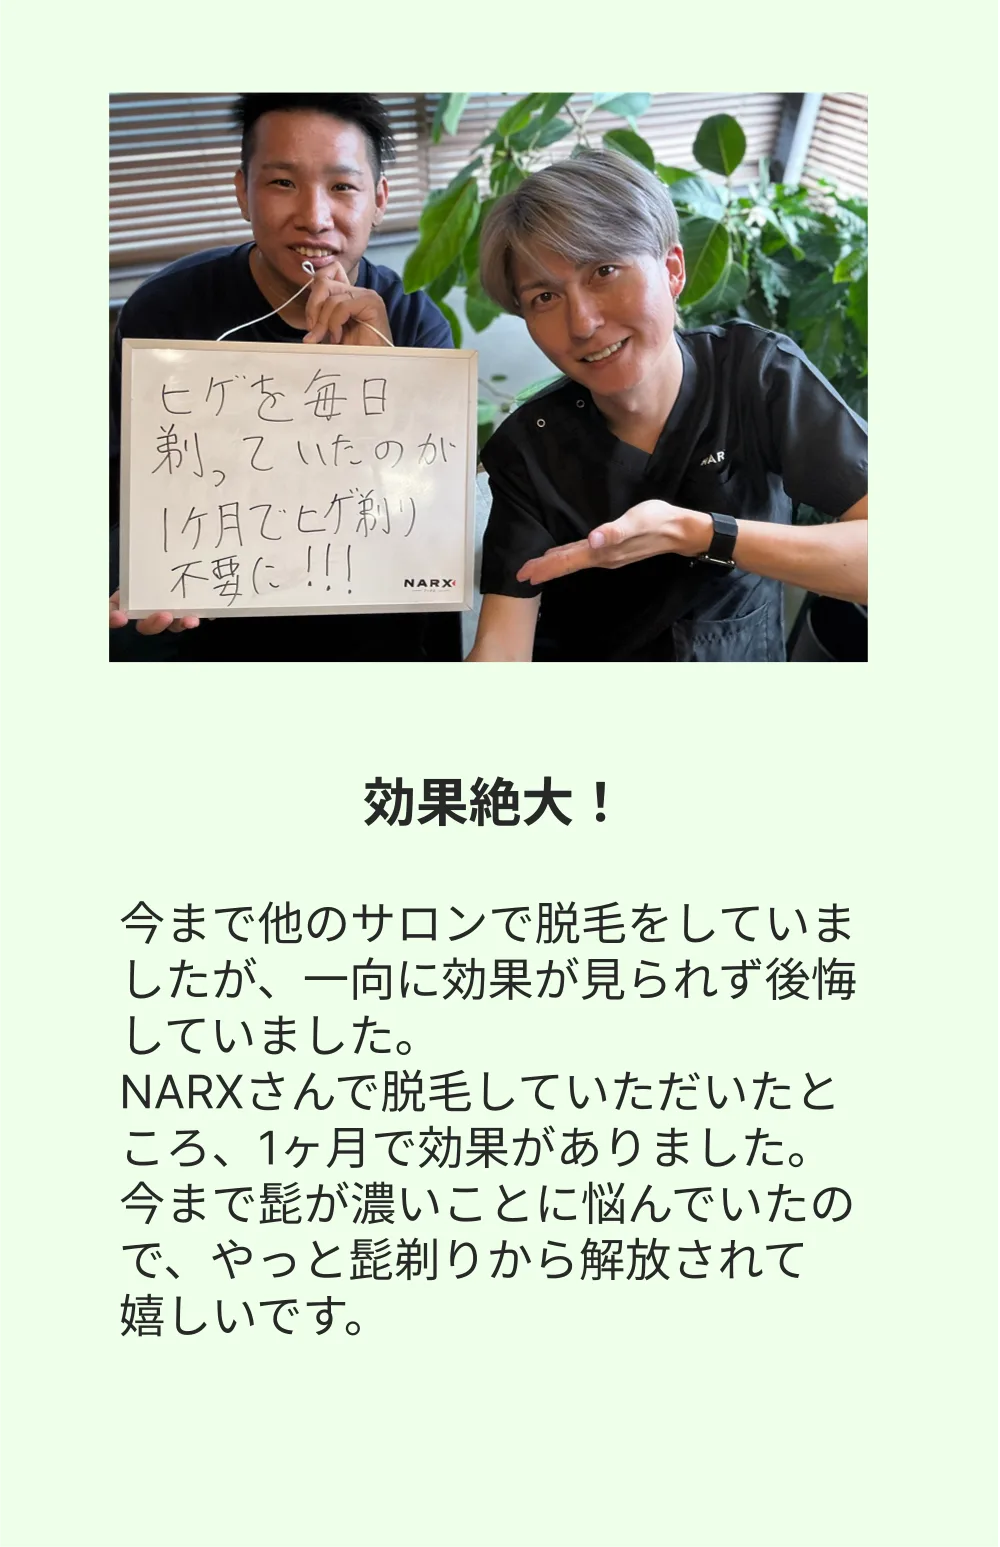 ヒゲを毎日
剃っていたのが
1ケ月でヒゲ剃り
不要に!!!
NARX
NAR
効果絶大！
今まで他のサロンで脱毛をしていま
したが、一向に効果が見られず後悔
していました。
NARXさんで脱毛していただいたと
ころ、1ヶ月で効果がありました。
今まで髭が濃いことに悩んでいたの
で、やっと髭剃りから解放されて
嬉しいです。